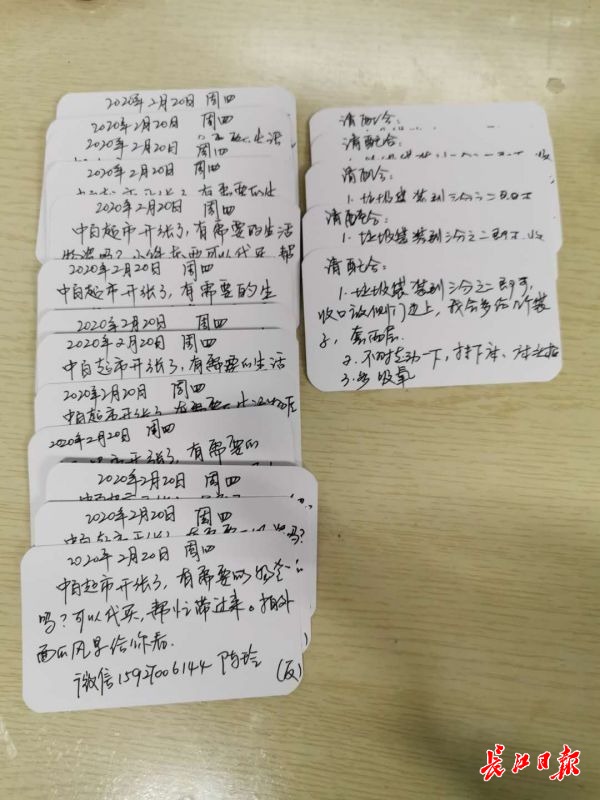 2020年2月20日 周四
2020年2月20日 周四
2020年2月20日 周四
2020年2月20日 周四
2020年2月20日 周四
中百超市开张了,有需要的生活
可以代买 帮
2020年2月20日 周四
中百超市开张了,有需要的生
2020年2月20日 周四
2020年2月20日 周四
中百超市开张了,有需要的生活
2020年2月20日 周四
中百超市开张了
2020年2月20日 周四
开张了,有需要的
2020年2月20日 周四
2020年2月20日 周四
吗?
2020年2月20日 周四
中百超市开张了,有需要的
吗?可以代买,帮忙带过来。拍外
面的风景给你看.
(反)
请配合:
请配合:
请配合:
1.垃圾袋装到三分之二即可
请配合:
1.垃圾袋装到三分之二即可.收
请配合:
1.垃圾袋装到三分之二即可,
收口放你们门边上,我会多给几个袋
子,套两层.
2.不时走动一下,
3.多吸氧
长江日报